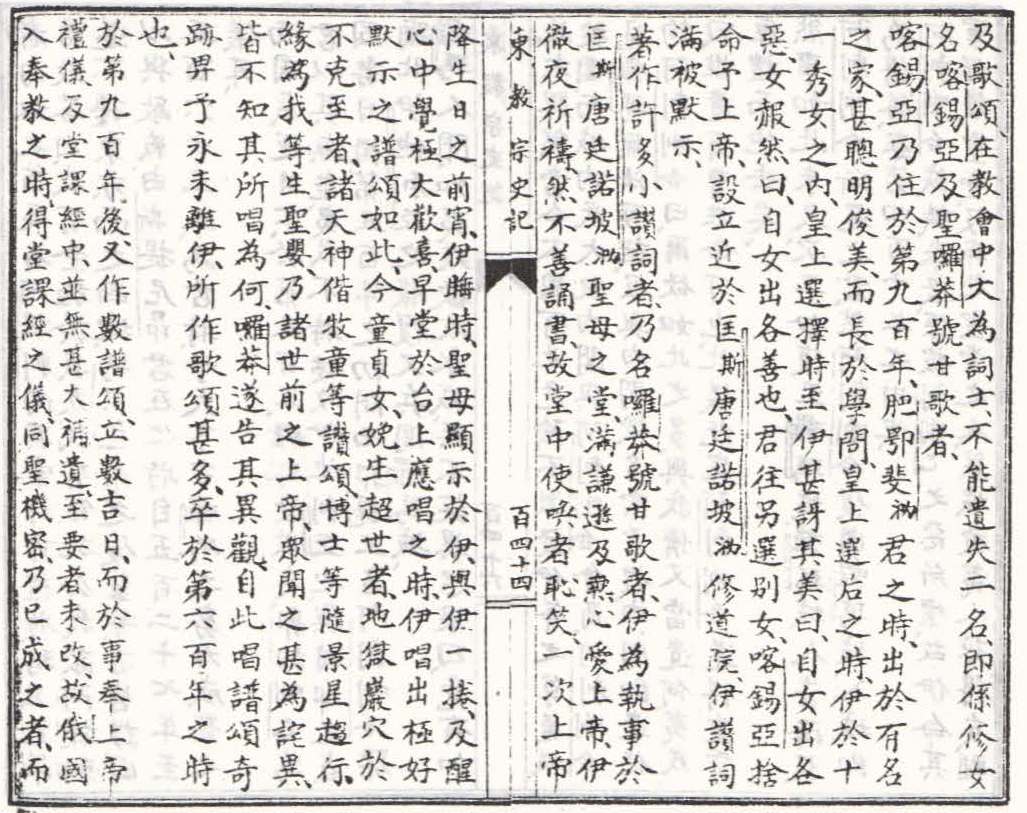 及歌頌、在教會中大為詞士、不能遺失二名、即係修女
名喀錫亞、及聖囉莽、號甘歌者、
喀錫亞乃住於第九百年、肥鄂斐洳君之時、出於有名
之家、甚聰明俊美、而長於學問、皇上選后之時、伊於十
一秀女之內、皇上選擇時至伊、甚訝其美曰、自女出各
惡、女赧然曰、自女出各善也、君往另選別女、喀錫亞捨
命予上帝、設立近於匡斯唐廷諾坡洳修道院、伊讚詞
滿被默示、
著作許多小讚詞者、乃名囉莽號甘歌者、伊為執事於
匡斯唐廷諾坡洳聖母之堂、滿謙遜及熱心愛上帝、伊
徹夜祈禱、然不善誦書、故堂中使唤者恥笑、一次上帝
東教宗史記
百四十四
降生日之前宵、伊睡時、聖母顯示於伊、與伊一捲、及醒
心中覺極大歡喜、早堂於台上應唱之時、伊唱出極好
默示之譜頌如此、今童貞女、娩生超世者、地獄巖穴於
不克至者、諸天神偕牧童等讚頌、博士等隨景星趨行、
緣為我等生聖嬰、乃諸世前之上帝、眾聞之甚為詫異、
皆不知其所唱為何、囉莽遂告其異觀、自此唱譜頌奇
跡畀予永未離伊、所作歌頌甚多、卒於第六百年之時
也、
於第九百年、後又作數譜頌、立數吉日、而於事奉上帝
禮儀、及堂課經中、並無甚大補遺、至要者未改、故俄國
入奉教之時、得堂課經之儀、同聖機密、乃已成之者、而